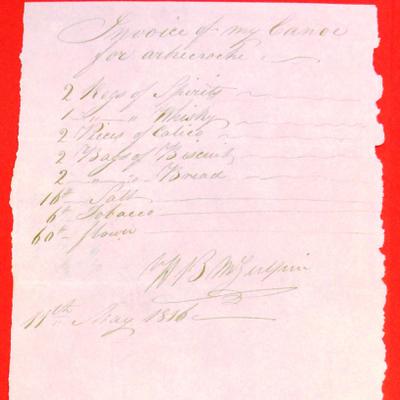 Invoice of my Canoe
for arbrecroche
2 Kegs of Spirits
1 " " Whisky
2 Pieces of Calico
2 Bags of Biscuit
2 " " Bread
16 lb Salt
6 lb Tobacco
60 lb flower
B McGulpin
11th May 1816